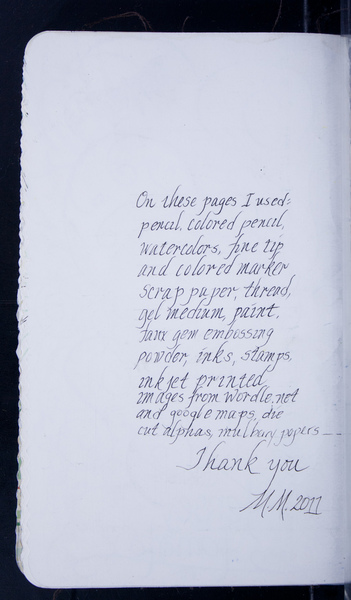 On these pages I used:
pencil, colored pencil,
watercolors, fine tip
and colored marker
scrap paper, thread,
gel medium, paint,
faux gem embossing
powder, inks, stamps,
inkjet printed
images from wordle.net
and google maps, die
cut alphas, mulbary papers —
Thank you
M.M. 2011